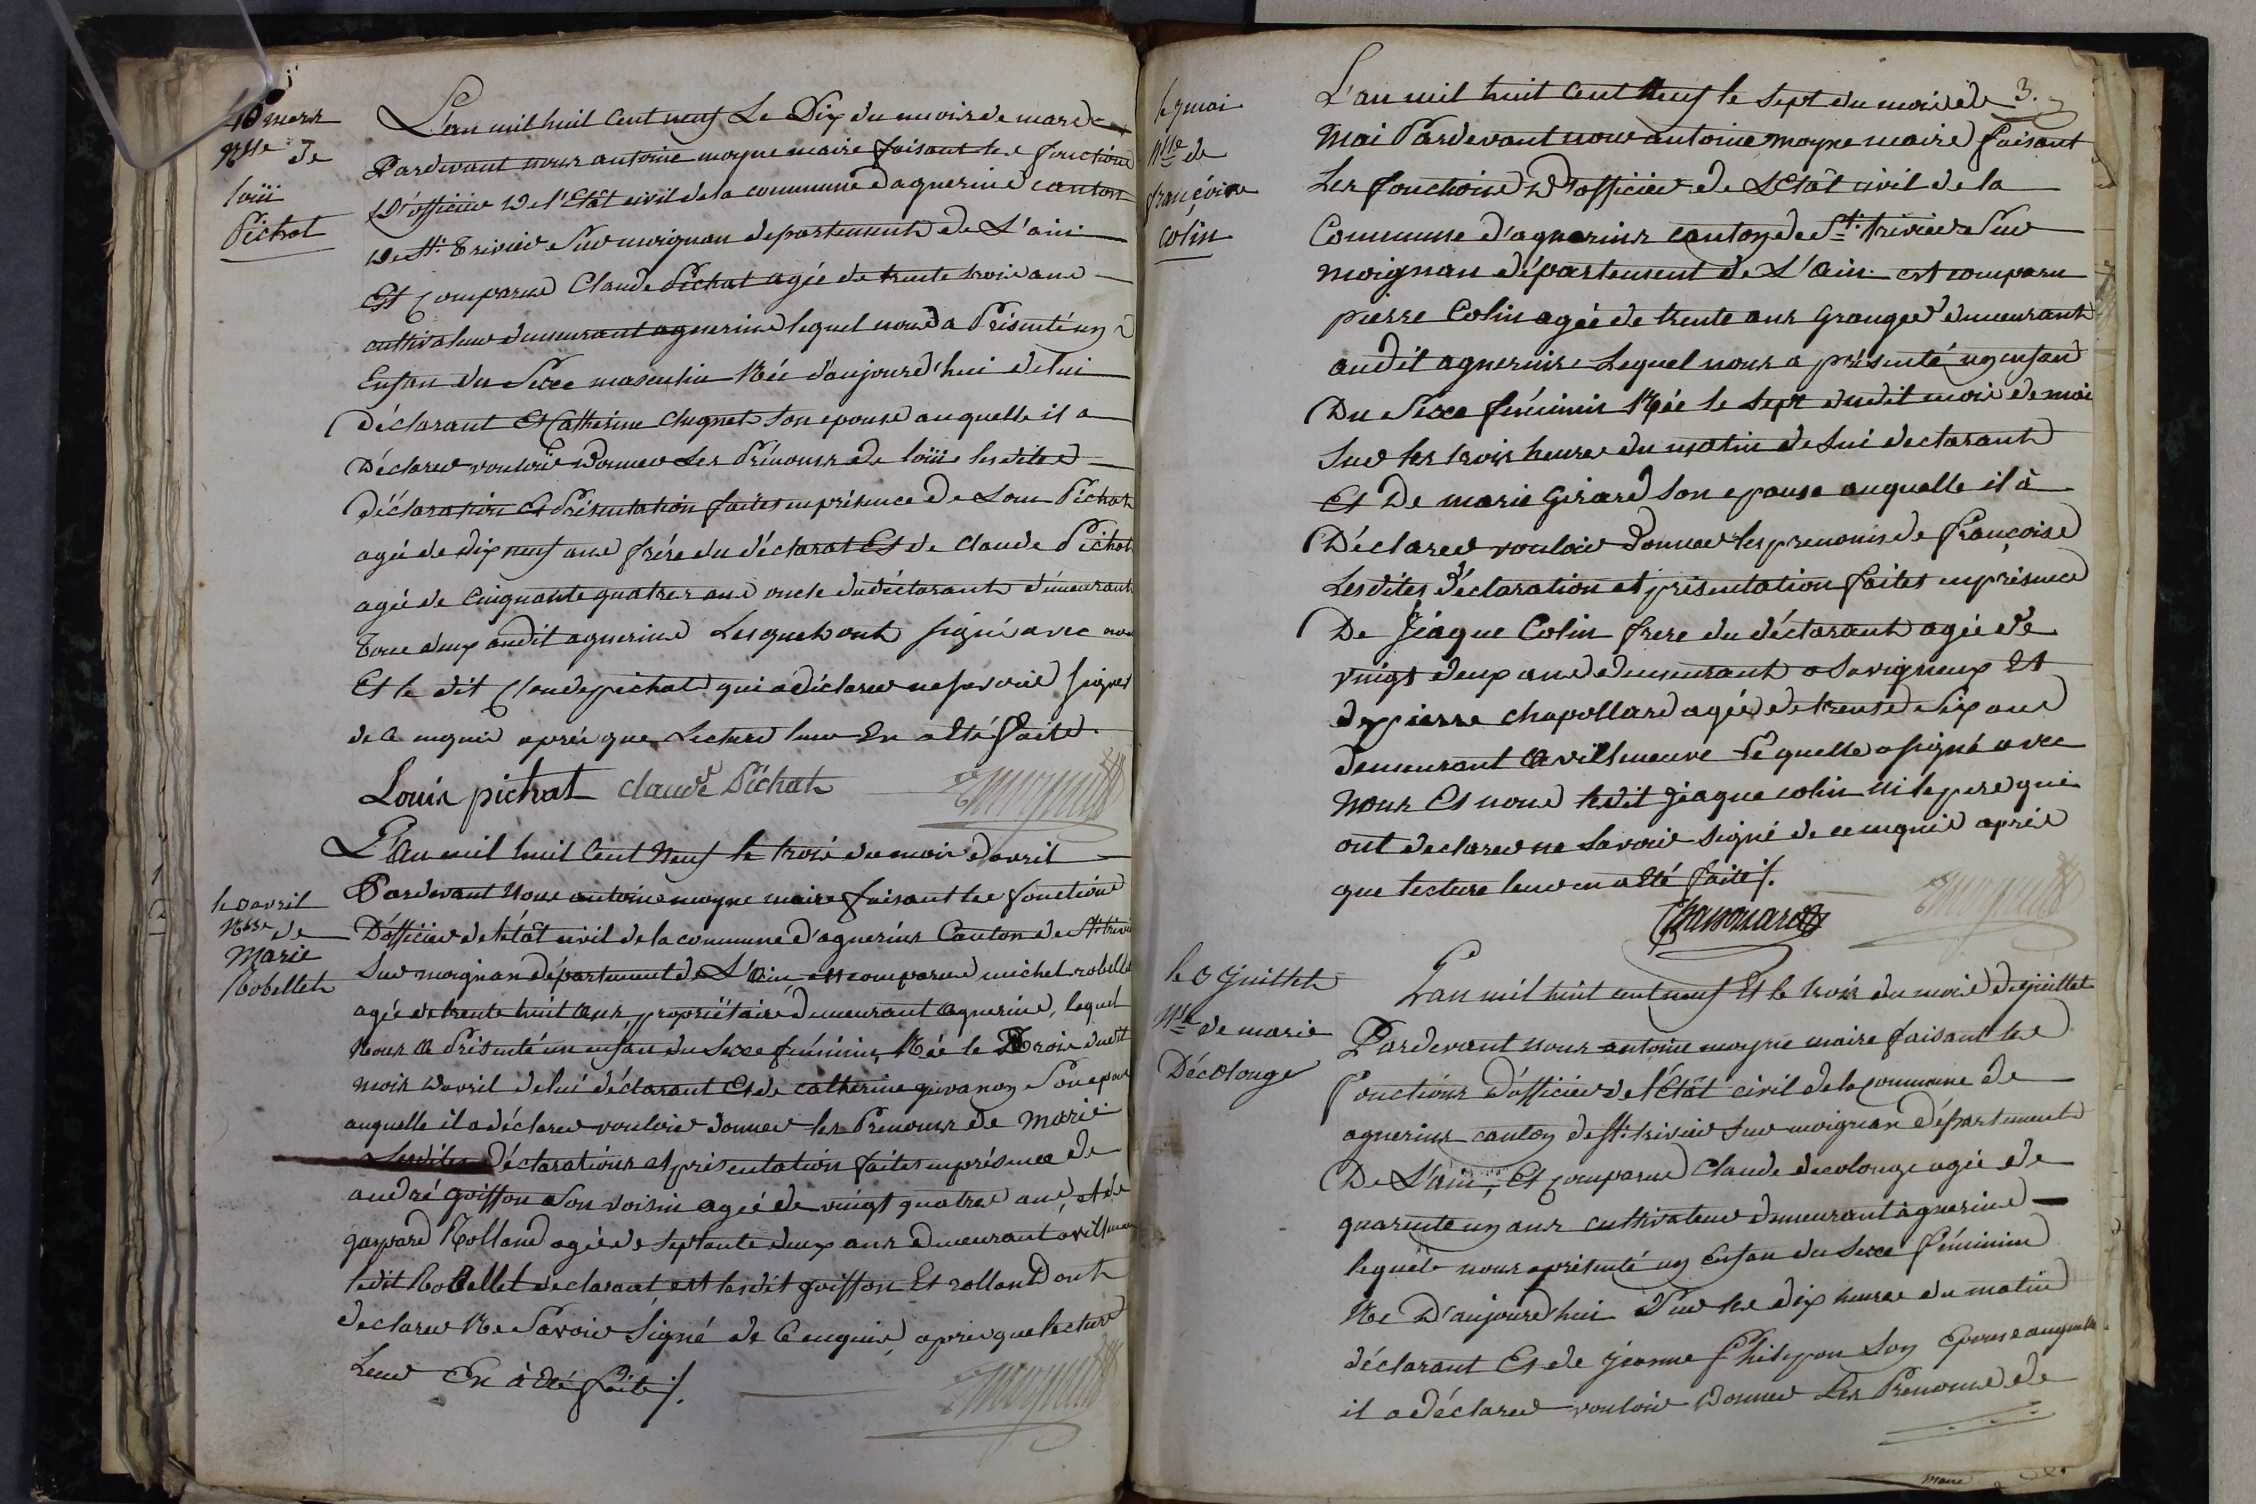 10 mars
Nsse de
loüi
Pichat
L'an mil huit Cent neuf Le Dix du mois de mars
Pardevant nous antoine moyne maire faisant les fonctions
D'officier De l'Etat civil de la commune d'agnerins canton
De St. Trivier Sur moignan departement de L'ain
Est Comparus Claude Pichat agée de trente trois ans
cultivateur demeurant agnerins lequel nous a Présenté un
Enfan du Sexe masculin Née d'aujourd'hui de lui
Déclarant Et Catherine Clugnet Son epouse auquelle il a
Déclarer vouloir Donner Les Prénoms de loüi lesdites
Déclaration Et Présentation faites en présence de Loui Pichat
agée de dix neuf ans frére du déclarat Et de Claude Pichat
agée de Cinquante quatres ans oncle du déclarant demeurant
Tous deux audit agnerins Lesquels ont signé avec nous
Et le dit Claude pichat qui a déclarer ne savoir signer
de Ce enquis aprés que Lecture leur En a Eté faite.
Louis pichat Claude Pichat
le 3 avril
Nsse de
Marie
Robellet
L'an mil huit Cent Neuf le trois du mois d'avril
Pardevant Nous antoine moyne maire faisant les fonctions
D'officier de létât civil de la commune d'agnerins Canton de St. trivier
Sur moignan département de L'ain est comparus michel robellet
agée de trente huit ans, propriétaire demeurant agnerins, lequel
Nous a Présenté un enfan du Sexe féminin, Née le Trois dudit
mois D'avril de lui déclarant Et de Catherine givanon Son epouse
auquelle il a déclarer vouloir donner les Prenoms de Marie
Lesdites Déclarations et présentation faites en présence de
andré goiffon Son voisin agée de vingt quatre ans, et de
gaspard Rolland agée de Septante deux ans demeurant a villeneuve
ledit Robellet declarant est lesdit goiffon Et rolland ont
declarer Ne Savoir Signé de Ce enquis, aprés que lecture
Leur En à Eté faite /.
3.
le 7 mai
Nsse de
françoise
Colin
L'an mil huit Cent Neuf le Sept du mois de
Mai Pardevant nous antoine moyne maire faisant
Les fonctions D'officier de L'Etat civil de la
Commune d'agnerins canton de St. trivier Sur
moignan département de L'ain est comparu
pierre Colin agée de trente ans Granger demeurant
audit agnerins Lequel nous a présenté un enfan
Du Sexe féminin Née le Sept dudit mois de mai
Sur les trois heures du matin de lui declarant
Et De marie Girard Son epouse auquelle il à
Déclarer vouloir Donner les prenoms de françoise
Lesdites déclaration et présentation faites en présence
De Jéaque Colin frere du déclarant agée de
vingt deux ans demeurant a Savigneux Et
de pierre chapollard agée de trente Six ans
demeurant a villeneuve Lequelle a signé avec
Nous Et nons ledit Jéaque colin ni le pere qui
ont declarer ne Savoir Signé de ce enquis aprés
que lecture leur en a Eté faite /.
le 3 juillet
Nsse de marie
Décolonge
L'an mil huit cent neuf Et le trois du mois de juillet
Pardevant nous antoine moyne maire faisant les
fonctions D'officier de l'Etât civil de la commune de
agnerins canton de St. trivier Sur moignan Département
De L'ain, Est comparus Claude decolonge agée de
quarente un ans cultivateur demeurant àgnerins
lequel nous a présenté un Enfan du Sexe féminin
Née D'aujourd'hui Sur les dix heures du matin
déclarant Et de jeanne Philipon Son Epouse auquelle
il a déclarer vouloir Donner Les Prenoms de